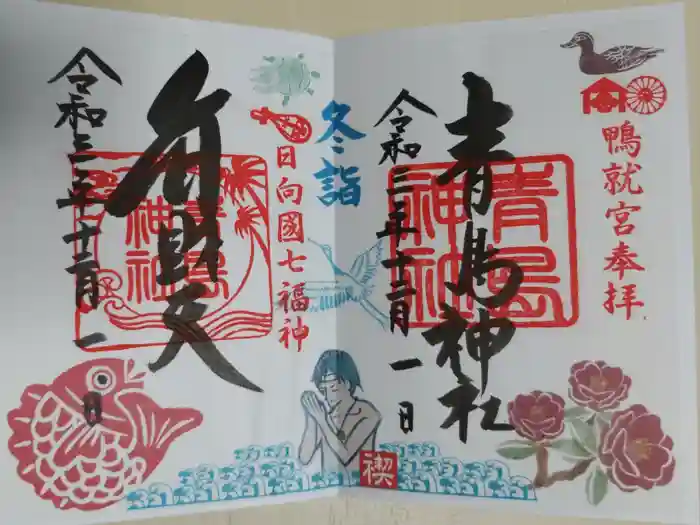 鴨就宮奉拝
青島神社
青島
神社
令和三年十二月一日
冬詣
禊
日向國七福神
弁財天
青島
神社
令和三年十二月一日